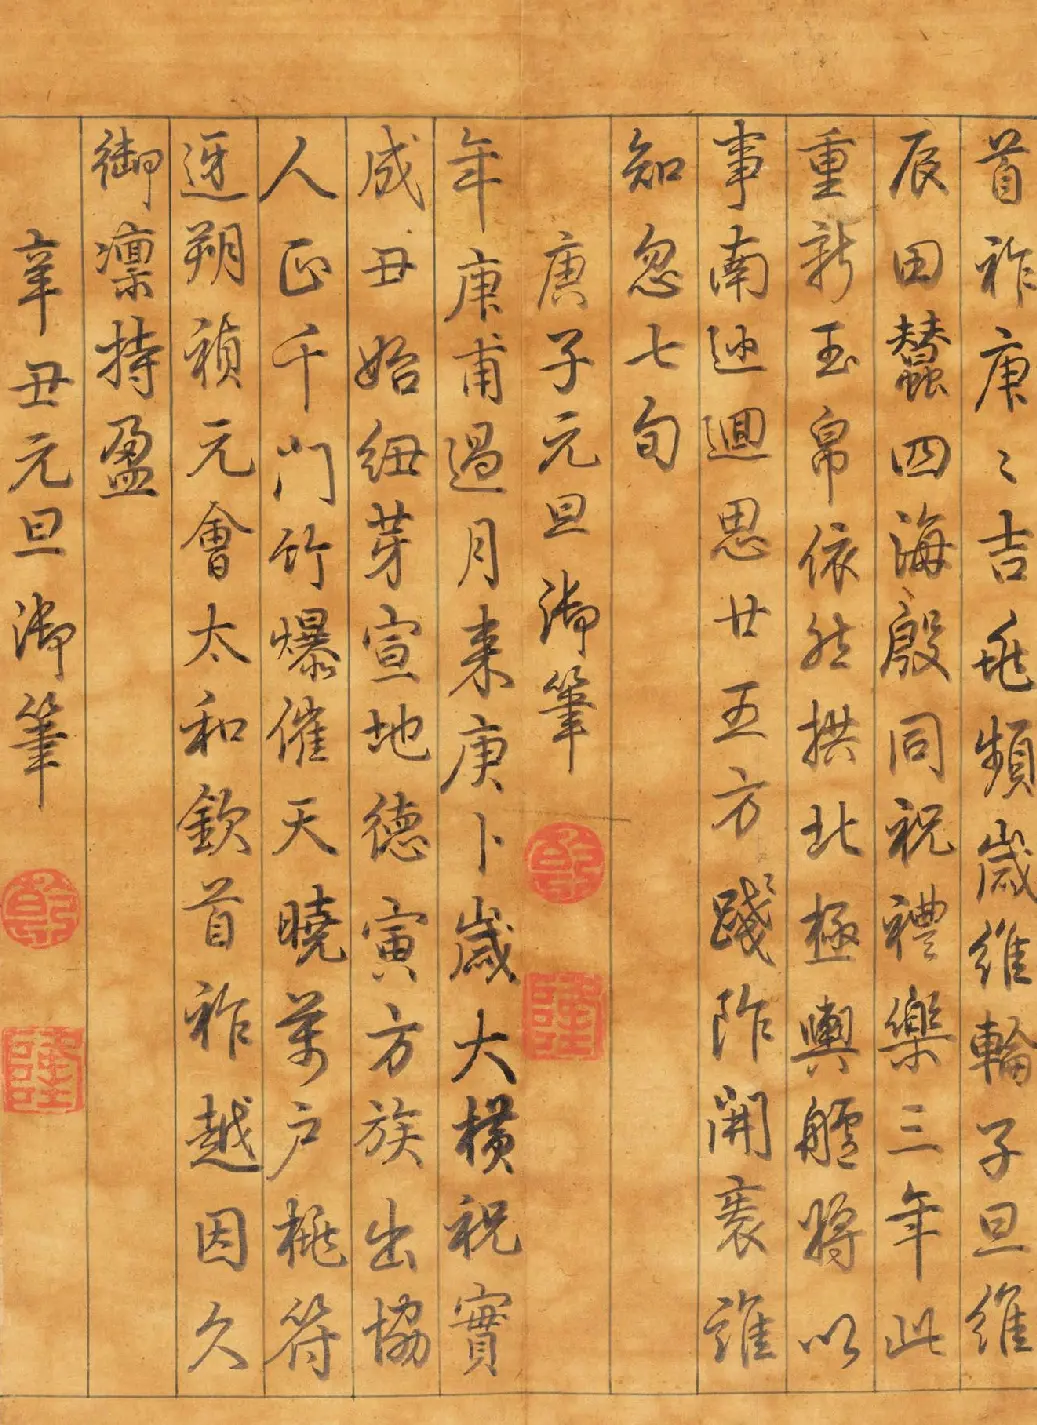 首祚庚〻吉兆頻歲維輪子旦維
辰田蠶四海殷同祝禮樂三年此
重新玉帛依然拱北極輿艫將以
事南廵迴思廿五方踐阼開袠誰
知忽七旬
庚子元旦御筆
年庚甫過月来庚卜歲大橫祝實
成丑始紐芽宣地德寅方族出協
人正千門竹爆催天曉萬户桃符
迓朔禎元會太和欽首祚越因久
御凛持盈
辛丑元旦御筆
乾
隆
乾
隆